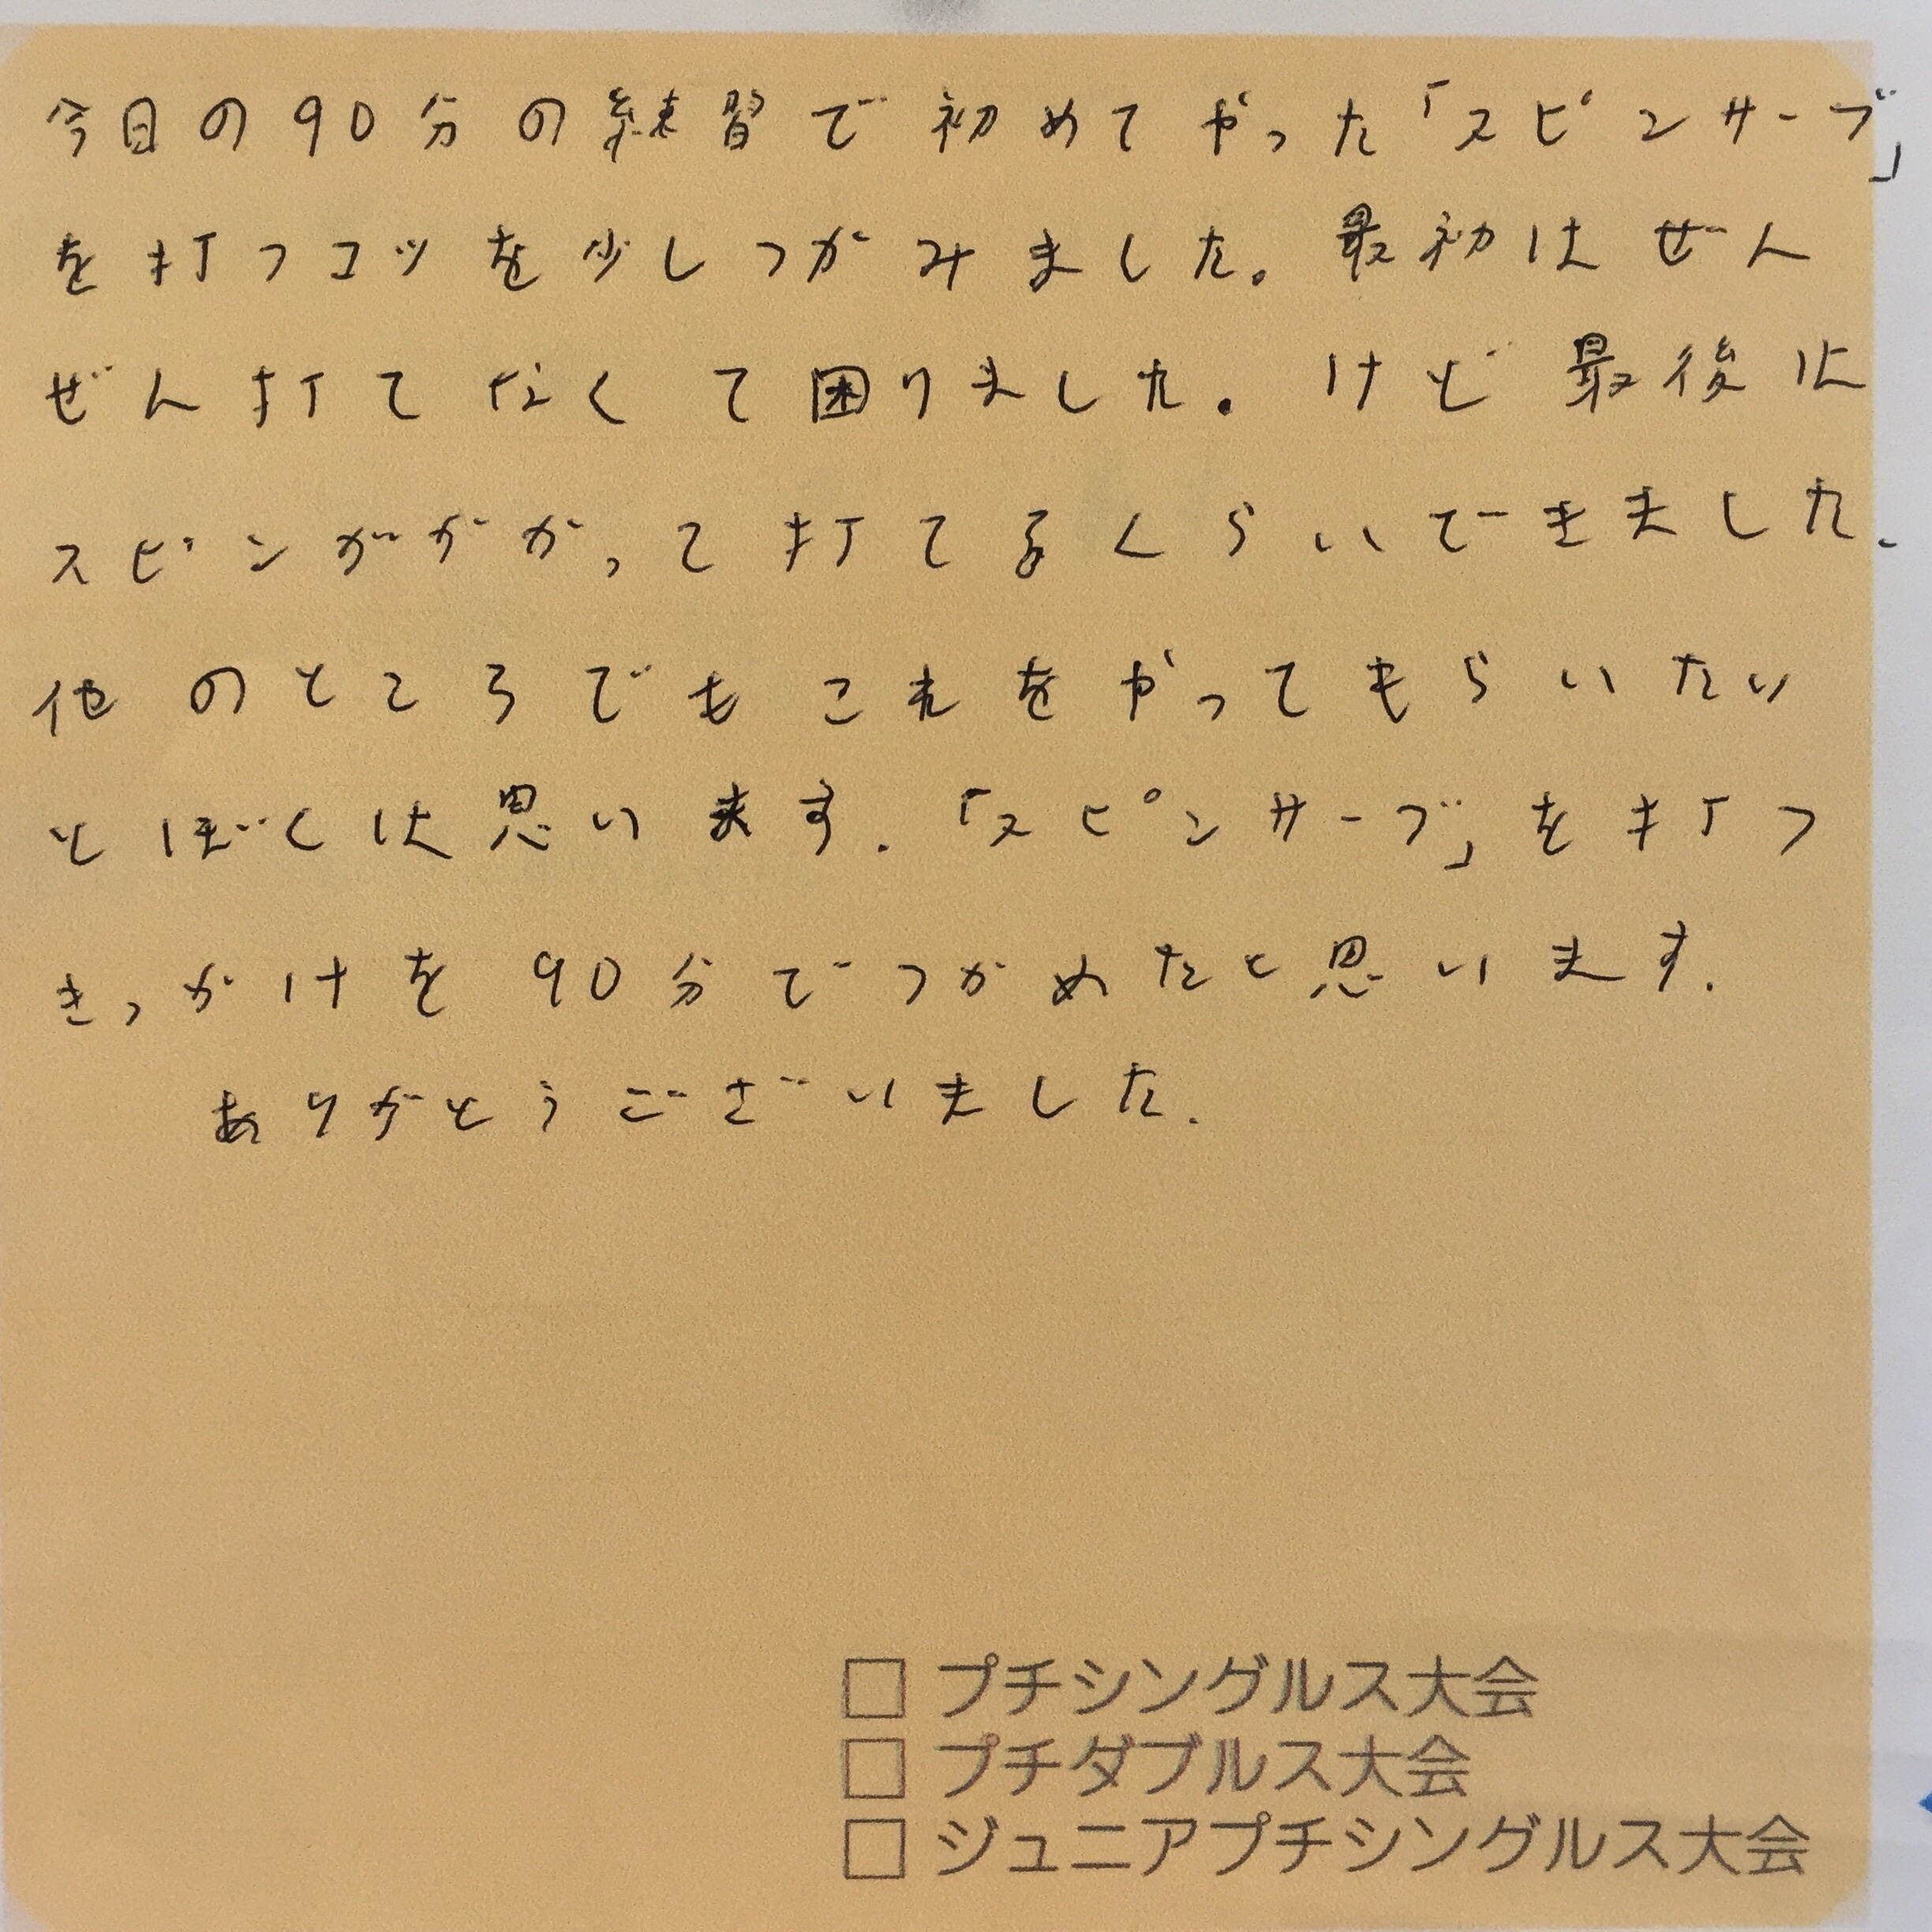 今日の90分の練習で初めてやった「スピンサーブ」
を打つコツを少しつかみました。最初はぜん
ぜん打てなくて困りました。けど最後に
スピンががかって打てるくらいできました。
他のところでもこれをやってもらいたい
とぼくは思います。「スピンサーブ」を打つ
きっかけを90分でつかめたと思います。
ありがとうございました。
□ プチシングルス大会
□ プチダブルス大会
□ ジュニアプチシングルス大会